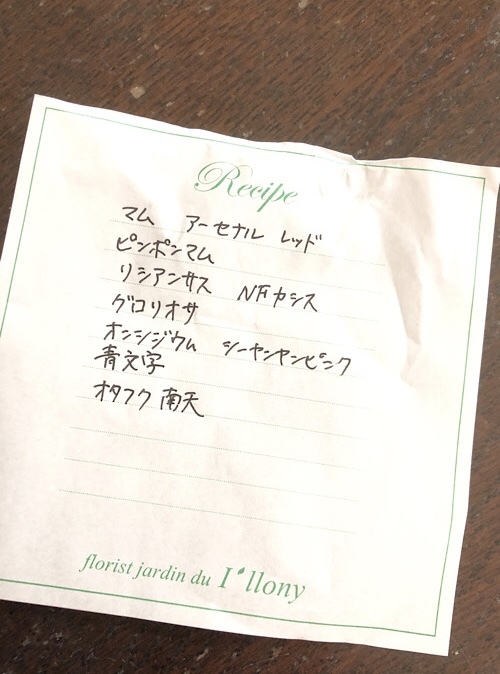 Recipe
マム アーセナル レッド
ピンポンマム
リシアンサス NFカシス
グロリオサ
オンシジウム シーヤンヤンピンク
青文字
オタフク南天
florist jardin du I'llony